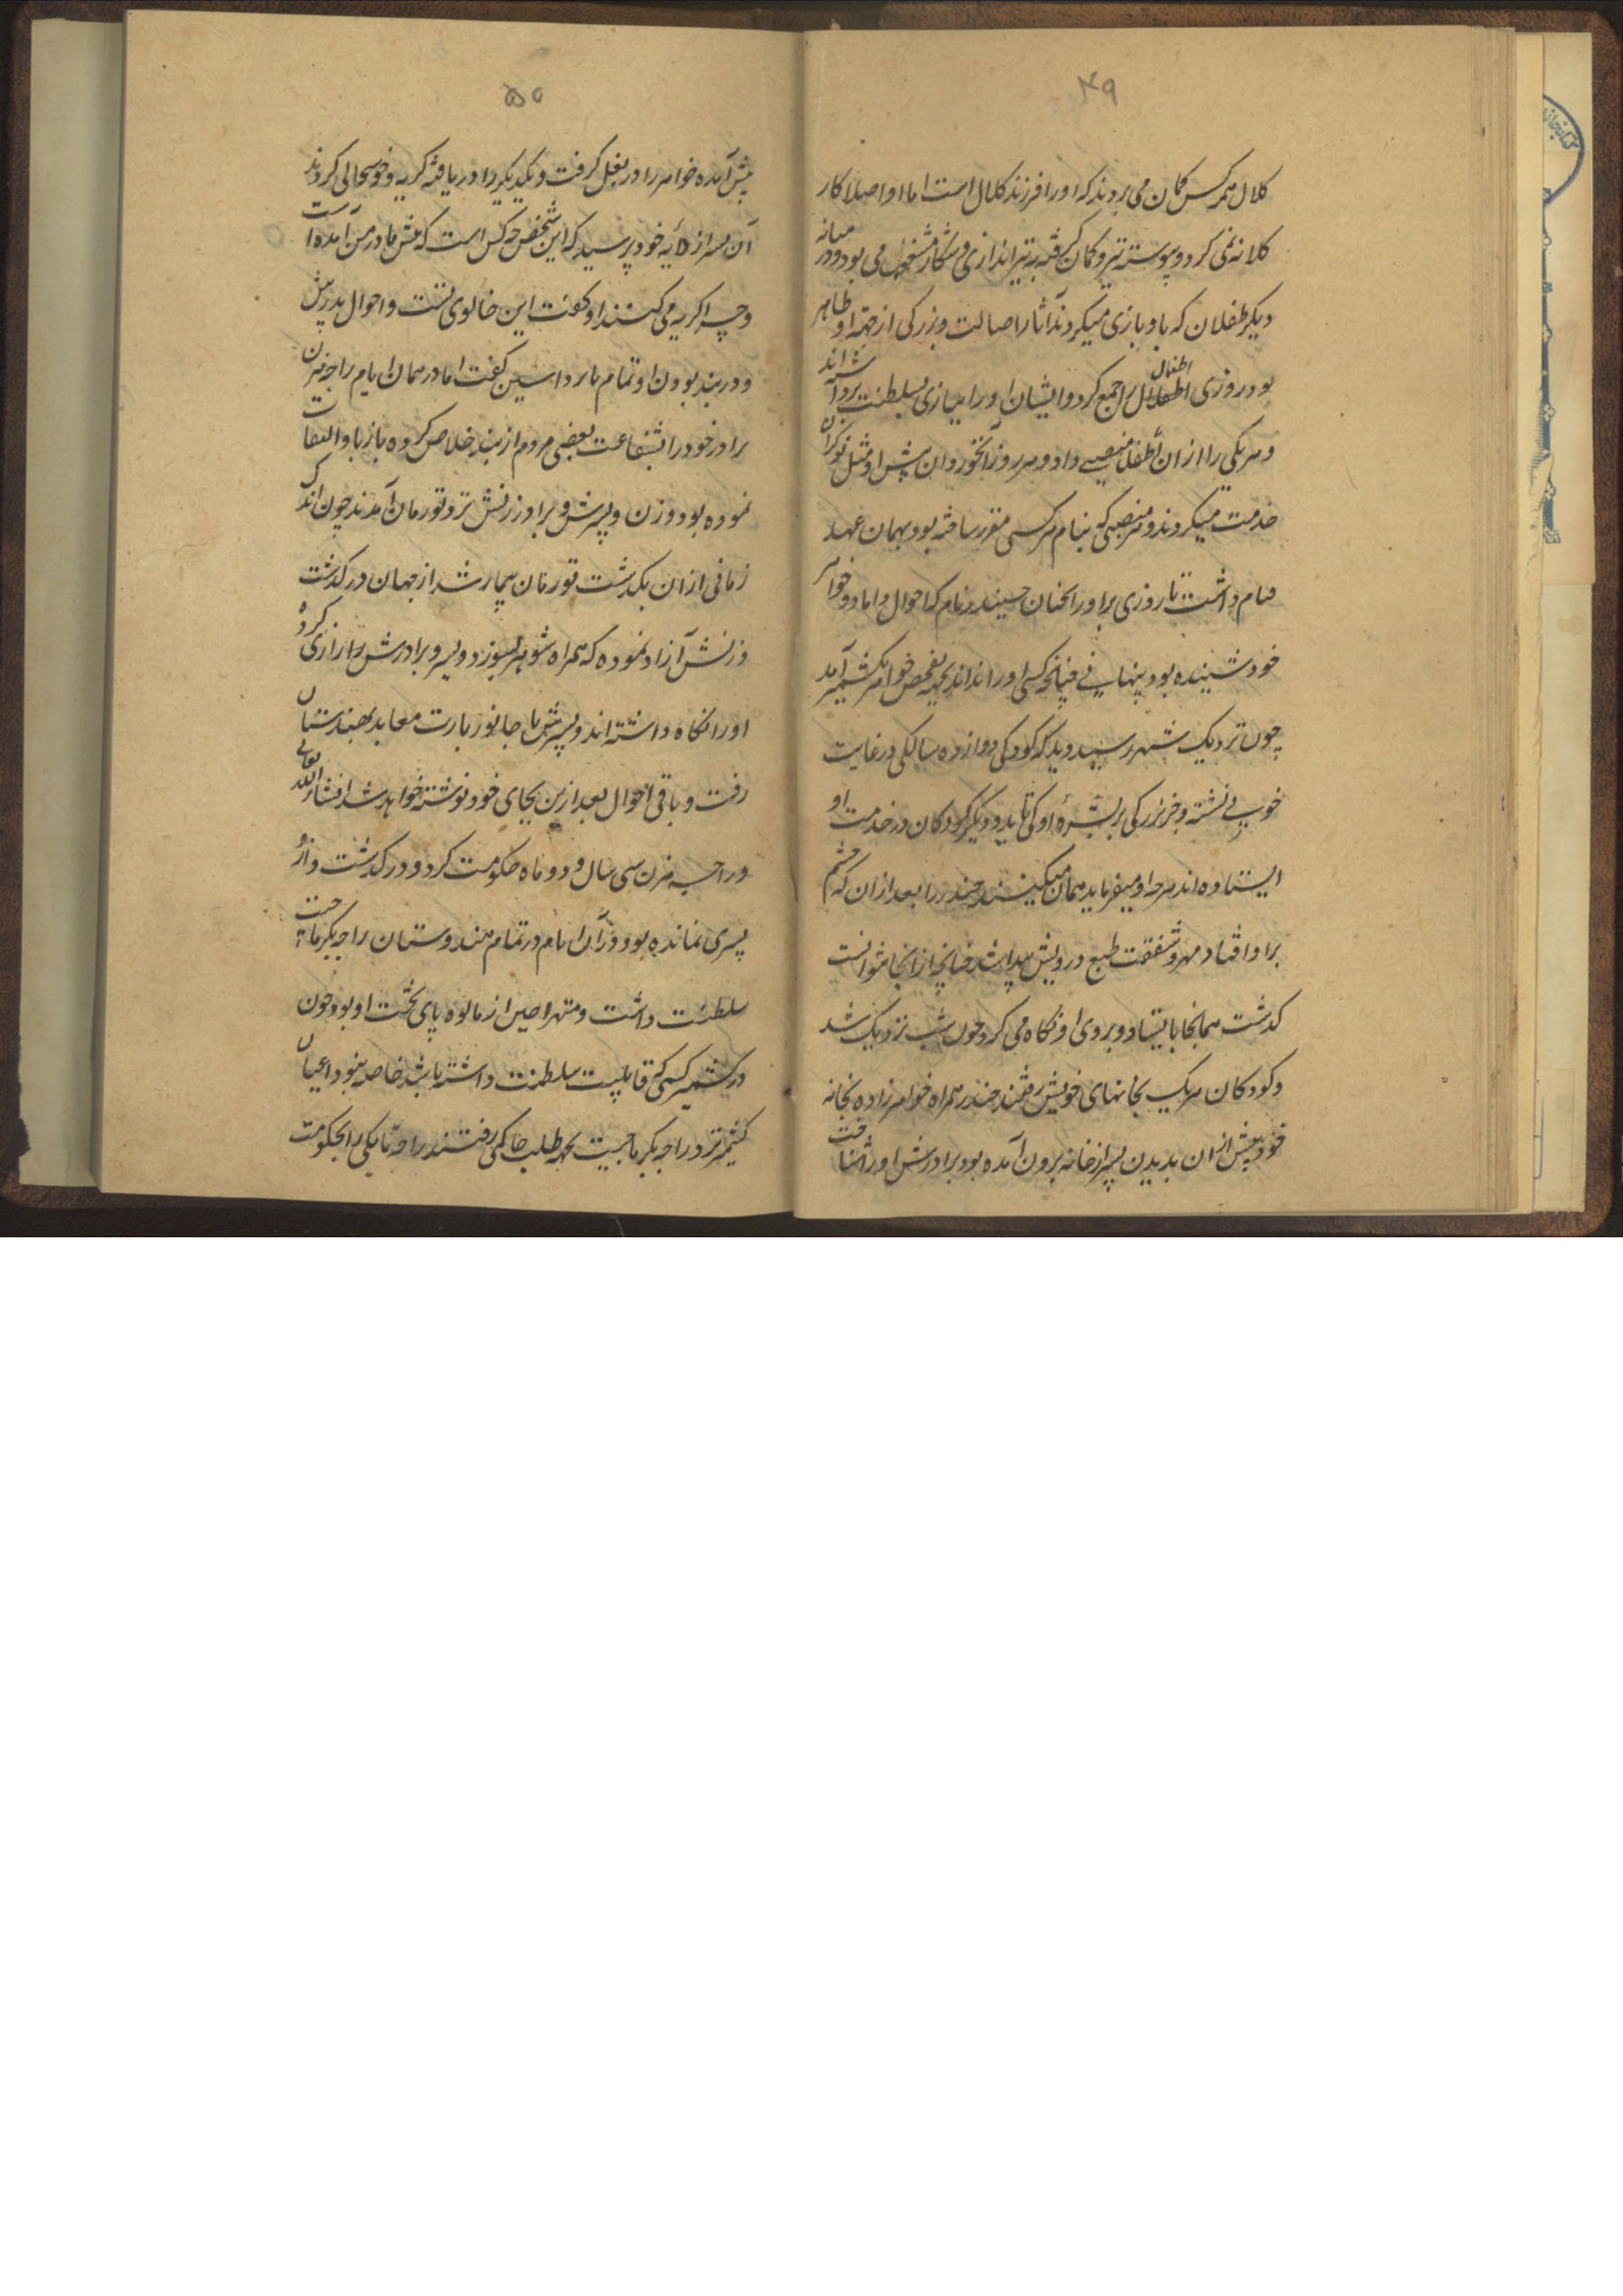 ۴۹
کلال هرکس کمان می بردند که او را فرزند کلال است اما او اصلا کار
کلانه نمی کرد و پیوسته تیر و کمان گرفته به تیراندازی و شکار مشغول می بود و در میانه
دیکر طفلان که با و بازی میکردند آثار اصالت و بزرکی از جبهه او ظاهر
بود روزی اطفال را جمع کرد و ایشان او را ببازی بسلطنت برداشته اند
و هر یکی را از ان اطفال منصبی داد و هر روز آنخوردان پیش او مثل نوکران
خدمت میکردند و هر منصبی که بنام هر کسی مقرر ساخته بود بهمان عهد
قیام داشت تا روزی برادر انجنان جیندر نام که احوال داماد و خواهر
خود شنیده بود پنهانی چنانچه کسی او را نداند بجهه تفحص خواهر بکشمیر آمد
چون نزدیک شهر رسید دید که کودکی دوازده سالکی در غایت
خوبی نشسته و خر بزرکی بر بشره او می تابد و دیکر کودکان در خدمت او
ایستاده اند هرچه او میفرماید همان میکنند جیندر را بعد از ان که چشم
بر او افتاد مهر و شفقت طبع درویش پیدا شد چنانچه از انجا نتوانست
کذشت همانجا بایستاد و بروی او نکاه می کرد چون شب نزدیک شد
و کودکان هر یک بخانهای خویش رفتند جیندر همراه خواهرزاده بخانه
خود پیش از ان بدیدن پسر از خانه برون آمده بود برادرش او را شناخت
۵۰
پیش آمده خواهر را در بغل کرفت و یکدیکر را دریافته کریه و خوشحالی کردند
آن پسر از دایه خود پرسید که این شخص چه کس است که پیش مادر من آمده است
و چرا کریه می کنند او کفت این خالوی تست و احوال پدرش
و در بند بودن او تمام باز داسین کفت اما در همان ایام راجه هرن
برادر خود را بشفاعت بعضی مردم از بند خلاص کرده باز باو التفات
نموده بود و زن و پسرش و برادر زنش نزد تورمان آمدند چون اندک
زمانی از ان بکذشت تورمان بیمار شد از جهان در کذشت
و زنش آزاد نموده که همراه شوهر بسوزد و پسر و برادرش را زاری کرده
او را نکاه داشته اند و پسرش با جانور بارت معابد بهندستان
رفت و باقی احوال بعد ازین بجای خود نوشته خواهد شد انشاء الله تعالی
و راجه هرن سی سال و دو ماه حکومت کرد و در کذشت و ازو
پسری نمانده بود و در آن ایام در تمام هندوستان راجه بکرماجیت
سلطنت داشت و متهرا حین از مالوه پای تخت او بود چون
در کشمیر کسی که قابلیت سلطنت داشته باشد خاصه نبود اعیان
کشمیر نزد راجه بکرماجیت بجهه طلب حاکمی رفتند راجه تا یکی را بحکومت